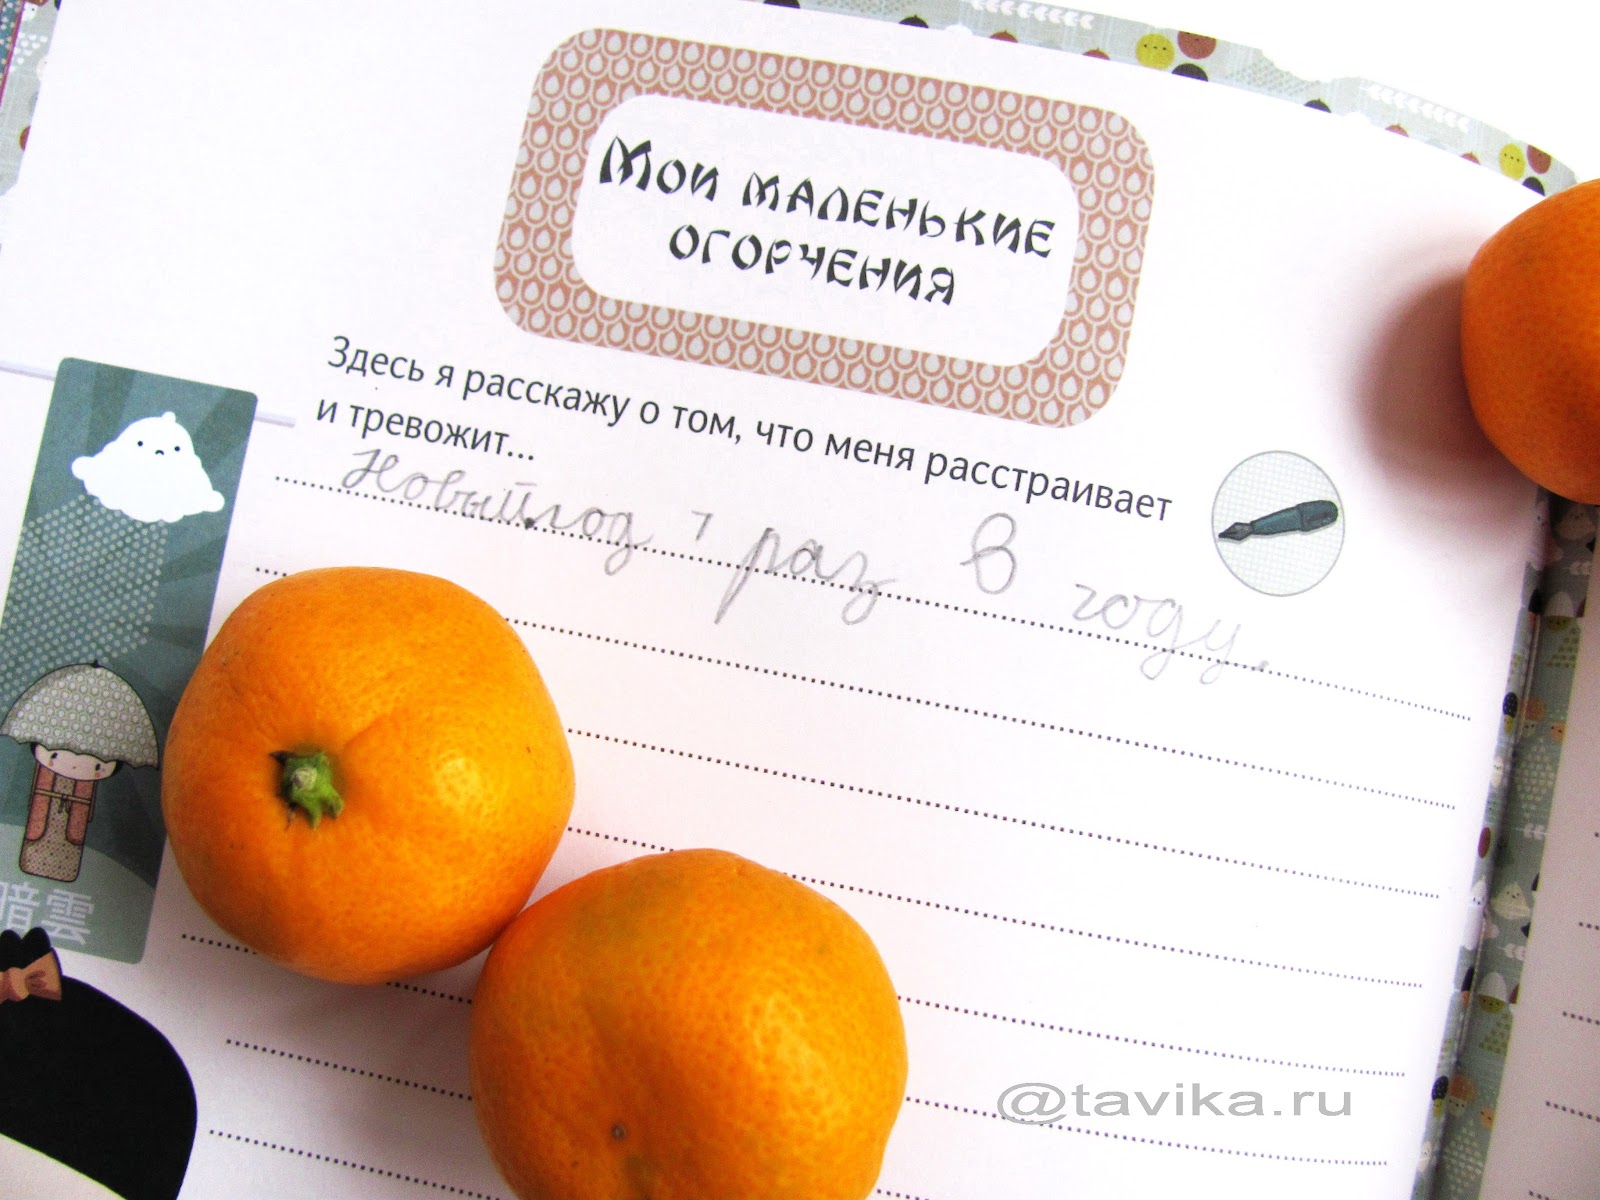 Мои маленькие
огорчения
Здесь я расскажу о том, что меня расстраивает
и тревожит...
Новый год 1 раз в году.
暗雲
@tavika.ru